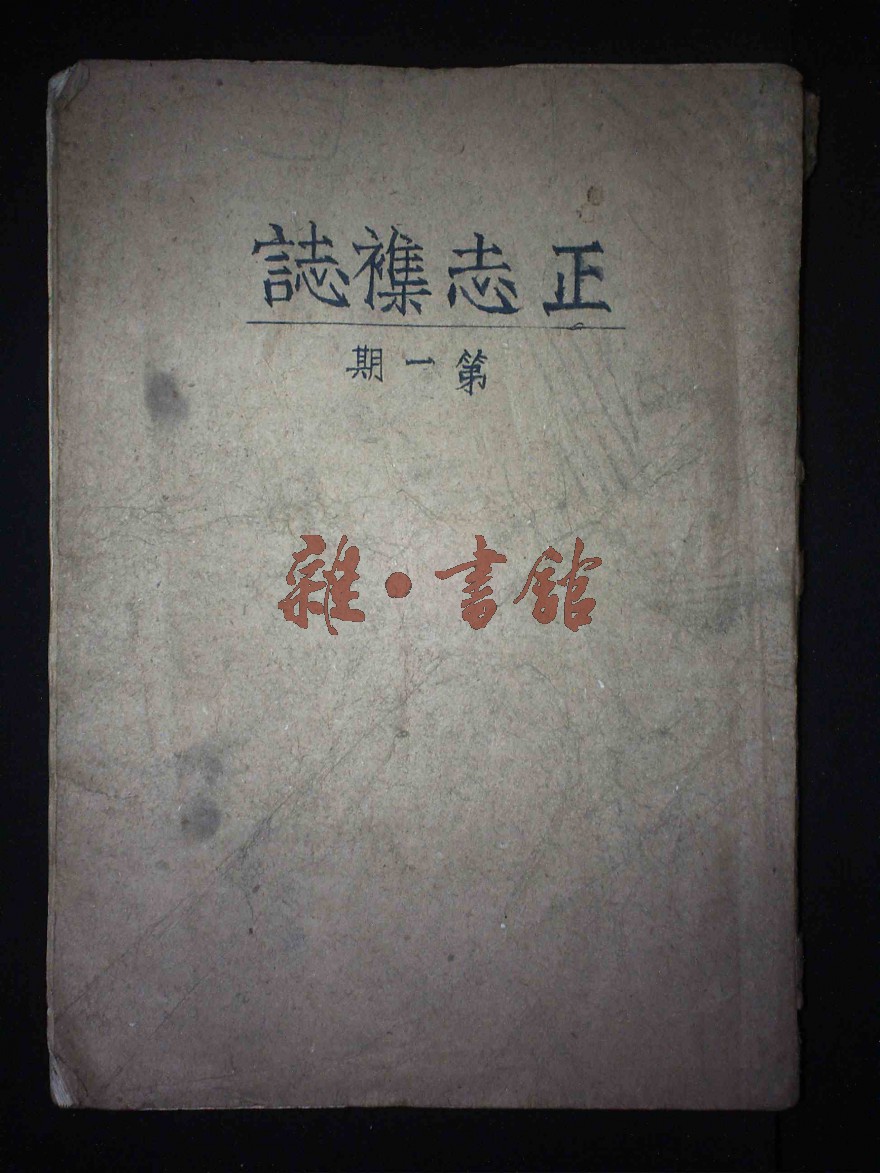 正志襍誌
第一期
雜·書館